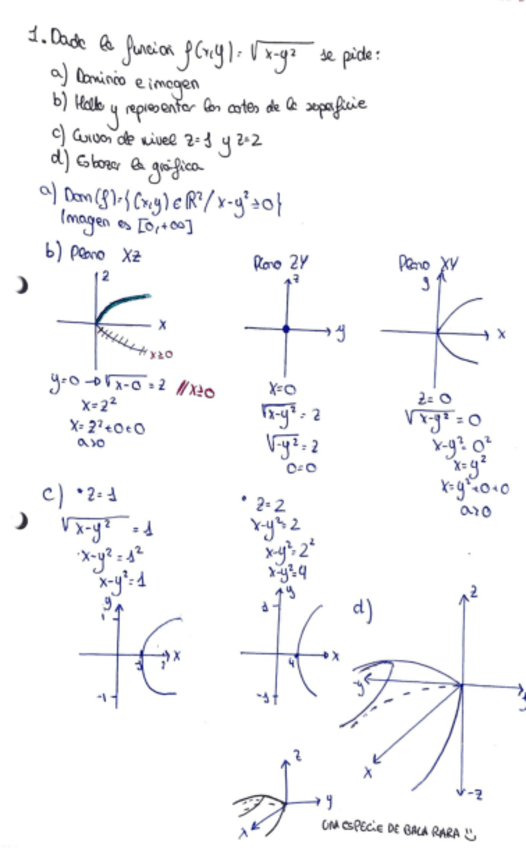 1. Dada la funcion f(x,y) = √x-y² se pide:
a) Dominio e imagen
b) Halla y representar los cortes de la superficie
c) Curvas de nivel z=1 y z=2
d) Esbozar la gráfica
a) Dom(f)={(x,y)∈R²/x-y²≥0}
Imagen es [0,+∞]
b) Plano XZ
z
x
x≥0
y=0 → √x-0 = z // x≥0
x=z²
x=z²+0+0
a>0
Plano ZY
z
y
x=0
√x-y² = z
√-y² = z
0=0
Plano XY
y
x
z=0
√x-y² = 0
x-y²=0²
x=y²
x=y²+0+0
a>0
c) • z=1
√x-y² = 1
x-y²=1²
x-y²=1
y
1
x
-1
• z=2
x-y²=2
x-y²=2²
x-y²=4
y
4
x
-1
d)
z
y
x
-z
z
y
x
UNA ESPECIE DE BALA RARA